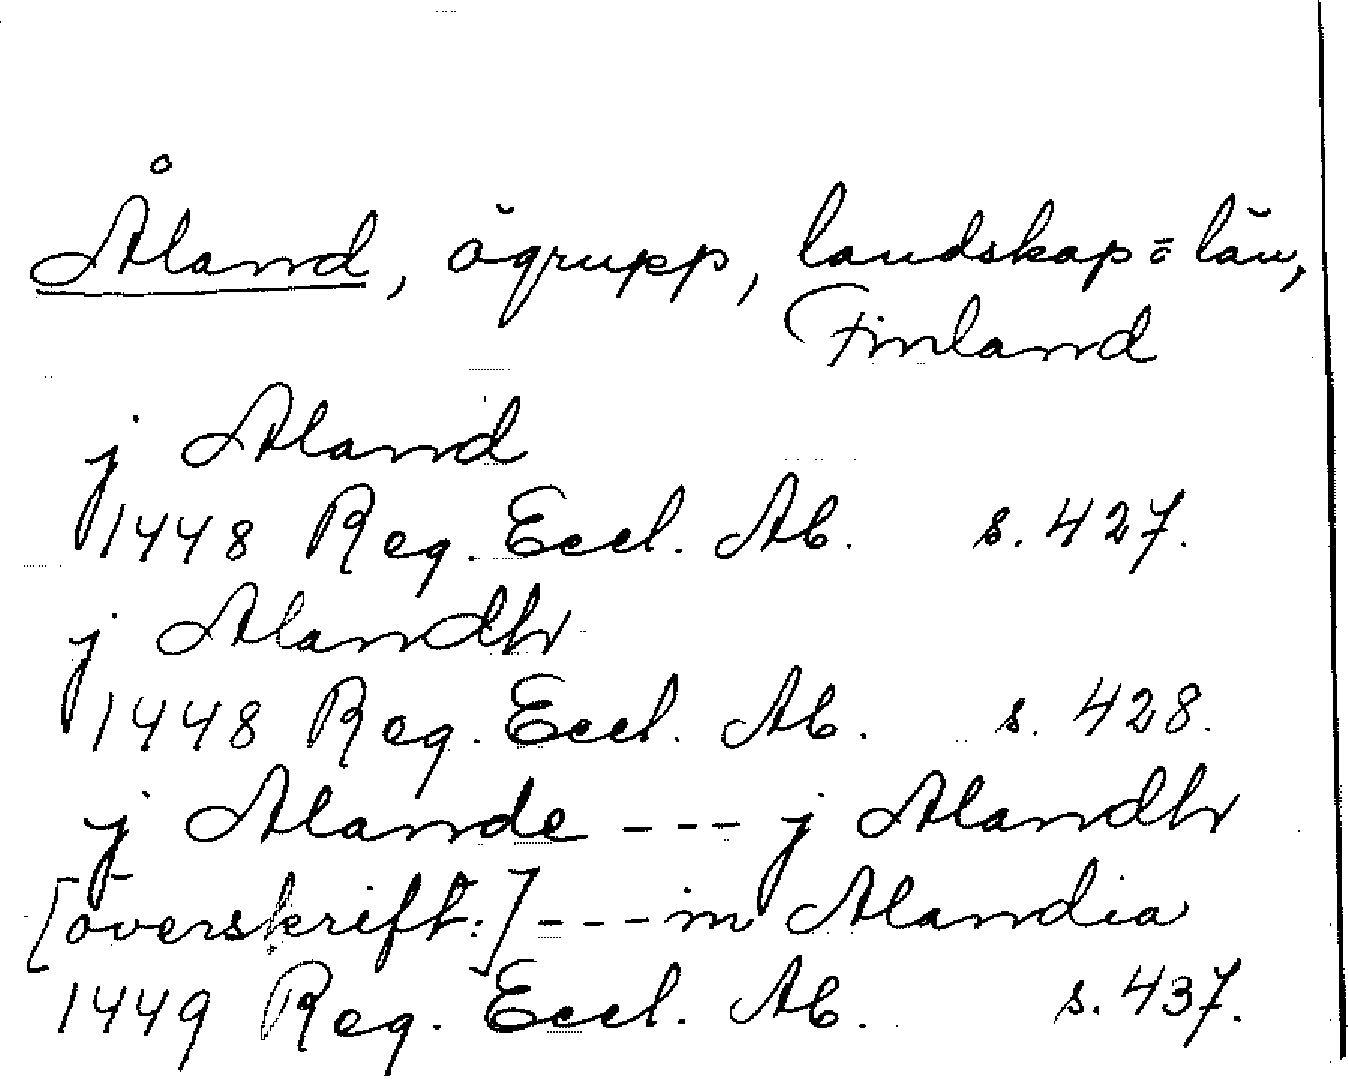 Åland, ögrupp, landskap = län,
Finland
j Aland
1448 Reg. Eccl. Ab. s. 427.
j Alandh
1448 Reg. Eccl. Ab. s. 428.
j Alande --- j Alandh
[överskrift:] --- in Alandia
1449 Reg. Eccl. Ab. s. 437.